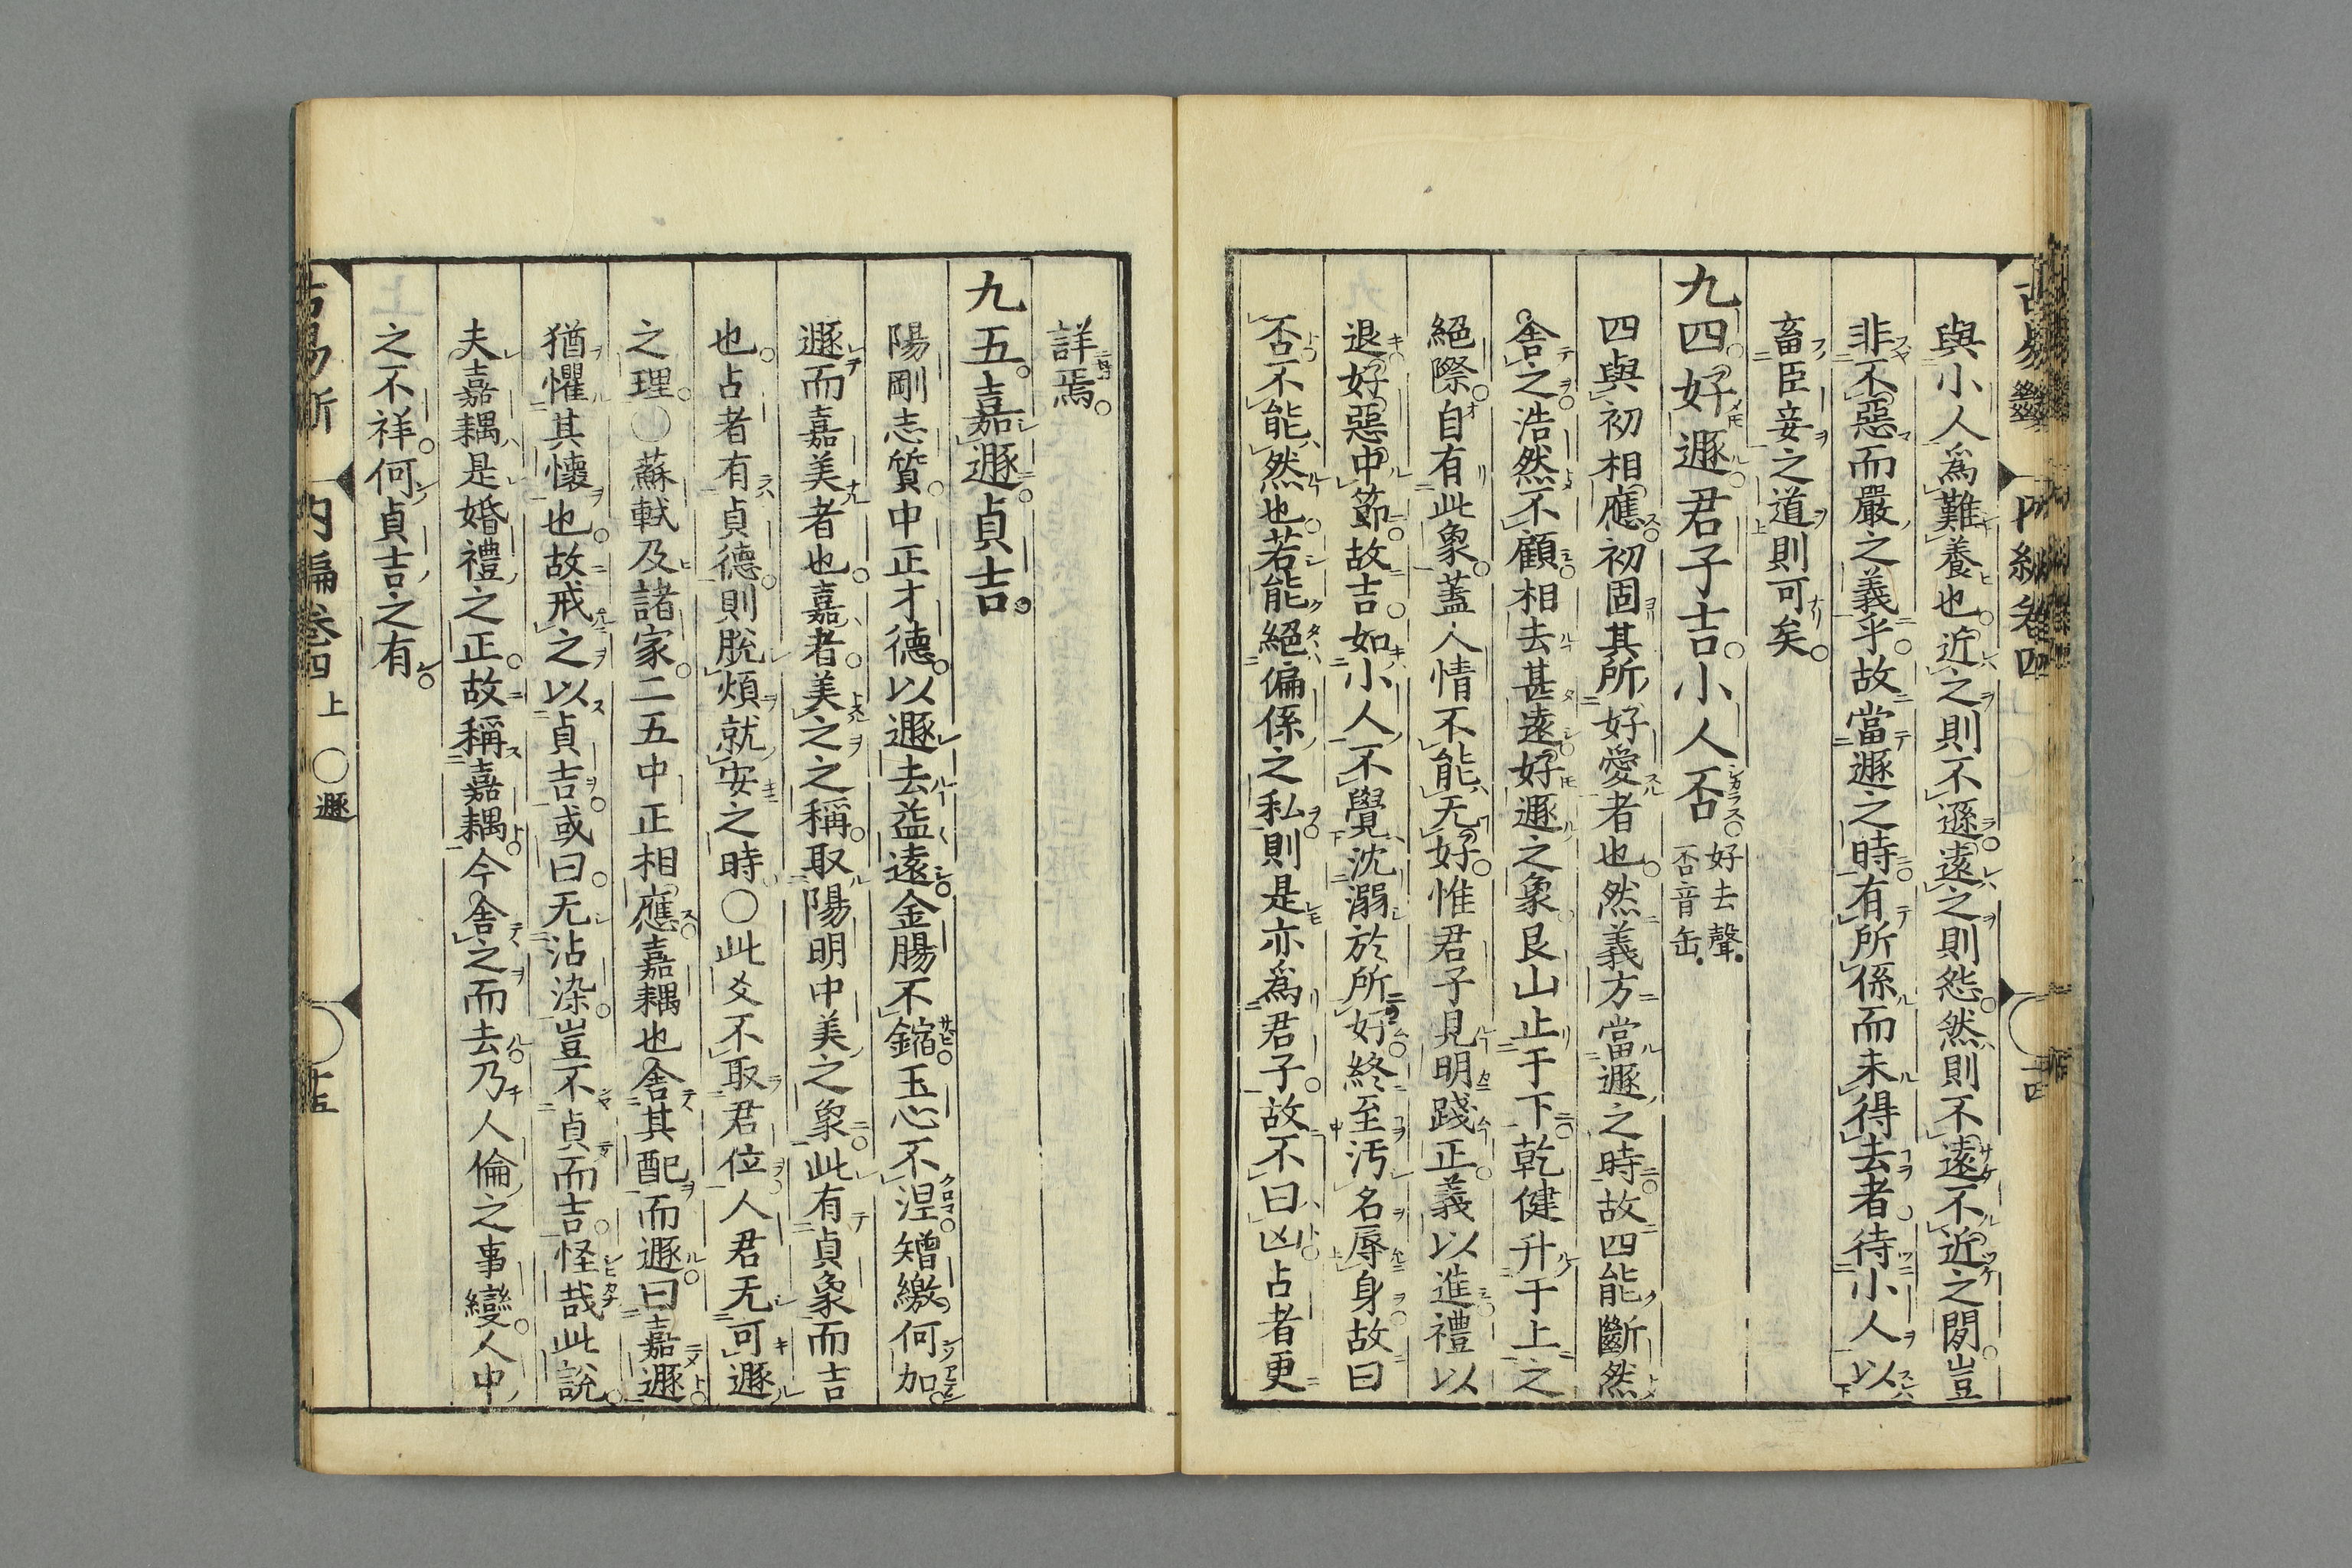 與小人爲難養也近之則不遜遠之則怨然則不遠不近之間豈
非不惡而嚴之義乎故當遯之時有所係而未得去者待小人以
畜臣妾之道則可矣
九四好遯君子吉小人否好去聲否音缶
四與初相應初固其所好愛者也然義方當遯之時故四能斷然
舍之浩然不顧相去甚遠好遯之象艮山止于下乾健升于上之
絕際自有此象蓋人情不能无好惟君子見明踐正義以進禮以
退好惡中節故吉如小人不覺沈溺於所好終至汚名辱身故曰
否不能然也若能絕偏係之私則是亦爲君子故不曰凶占者更
詳焉
九五嘉遯貞吉
陽剛志質中正才德以遯去益遠金腸不鎦玉心不涅矰繳何加
遯而嘉美者也嘉者美之之稱取陽明中美之象此有貞象而吉
也占者有貞德則脫煩就安之時〇此爻不取君位人君无可遯
之理〇蘇軾及諸家二五中正相應嘉耦也舍其配而遯曰嘉遯
猶懼其懷也故戒之以貞吉或曰无沾染豈不貞而吉怪哉此說
夫嘉耦是婚禮之正故稱嘉耦今舍之而去乃人倫之事變人中
之不祥何貞吉之有
古易斷 内編卷四上 〇遯 十五